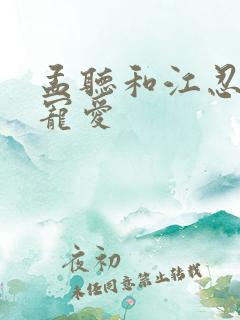 孟聽和江忍
寵愛
夜初
未任同意禁止转载